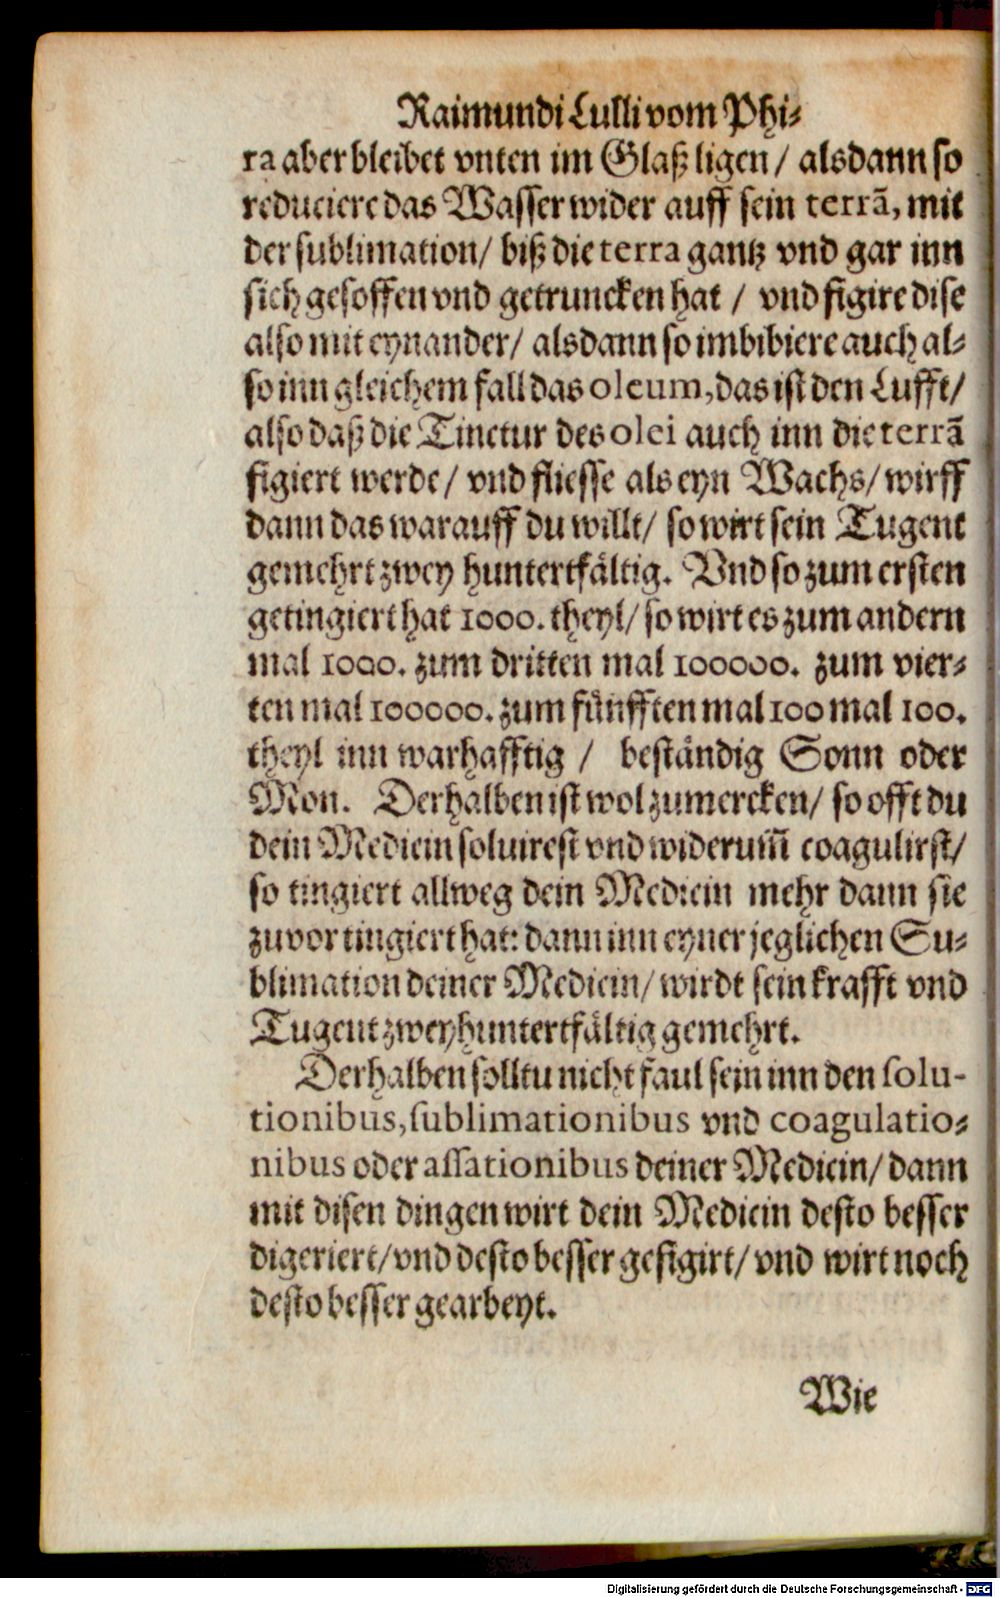 Raimundi Lulli vom Phi-
ra aber bleibet vnten im Glaß ligen / alsdann so
reduciere das Wasser wider auff sein terrã, mit
der sublimation / biß die terra gantz vnd gar inn
sich gesoffen vnd getruncken hat / vnd figire dise
also mit eynander / alsdann so imbibiere auch al-
so inn gleichem fall das oleum, das ist den Lufft /
also daß die Tinctur des olei auch inn die terrã
figiert werde / vnd fliesse als eyn Wachs / wirff
dann das warauff du willt / so wirt sein Tugent
gemehrt zwey huntertfältig. Vnd so zum ersten
getingiert hat 1000. theyl / so wirt es zum andern
mal 1000. zum dritten mal 100000. zum vier-
ten mal 100000. zum fünfften mal 100 mal 100.
theyl inn warhafftig / beständig Sonn oder
Mon. Derhalben ist wol zumercken / so offt du
dein Medicin soluirest vnd widerum̃ coagulirst /
so tingiert allweg dein Medicin mehr dann sie
zuvor tingiert hat: dann inn eyner jeglichen Su-
blimation deiner Medicin / wirdt sein krafft vnd
Tugent zwey huntertfältig gemehrt.
Derhalben solltu nicht faul sein inn den solu-
tionibus, sublimationibus vnd coagulatio-
nibus oder assationibus deiner Medicin / dann
mit disen dingen wirt dein Medicin desto besser
digeriert / vnd desto besser gefigirt / vnd wirt noch
desto besser gearbeyt.
Wie
Digitalisierung gefördert durch die Deutsche Forschungsgemeinschaft - DFG